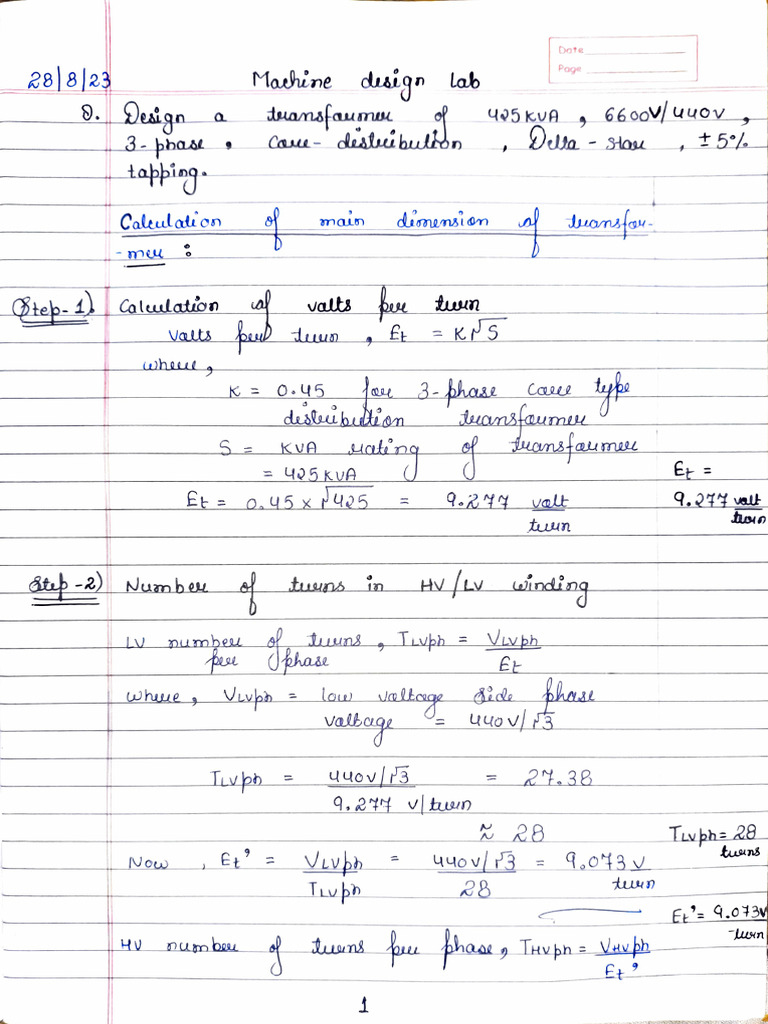 Date
Page
28/8/23 Machine design lab
Q. Design a transformer of 425KVA, 6600V/440V,
3-phase, core-distribution, Delta-star, ±5%
tapping.
Calculation of main dimension of transfor-
-mer :
Step-1). Calculation of volts per turn
Volts per turn, Et = K√S
where,
K = 0.45 for 3-phase core type
distribution transformer
S = KVA rating of transformer
= 425KVA
Et =
Et = 0.45 × √425 = 9.277 volt/turn
9.277 volt/turn
Step-2) Number of turns in HV/LV winding
LV number of turns, TLVph = VLVph/Et
per phase
where, VLVph = low voltage side phase
voltage = 440V/√3
TLVph = 440V/√3 / 9.277 V/turn = 27.38
≈ 28
TLVph = 28
turns
Now, Et' = VLVph/TLVph = 440V/√3 / 28 = 9.073 V/turn
Et' = 9.073V
-turn
HV number of turns per phase, THVph = VHVph/Et'
1